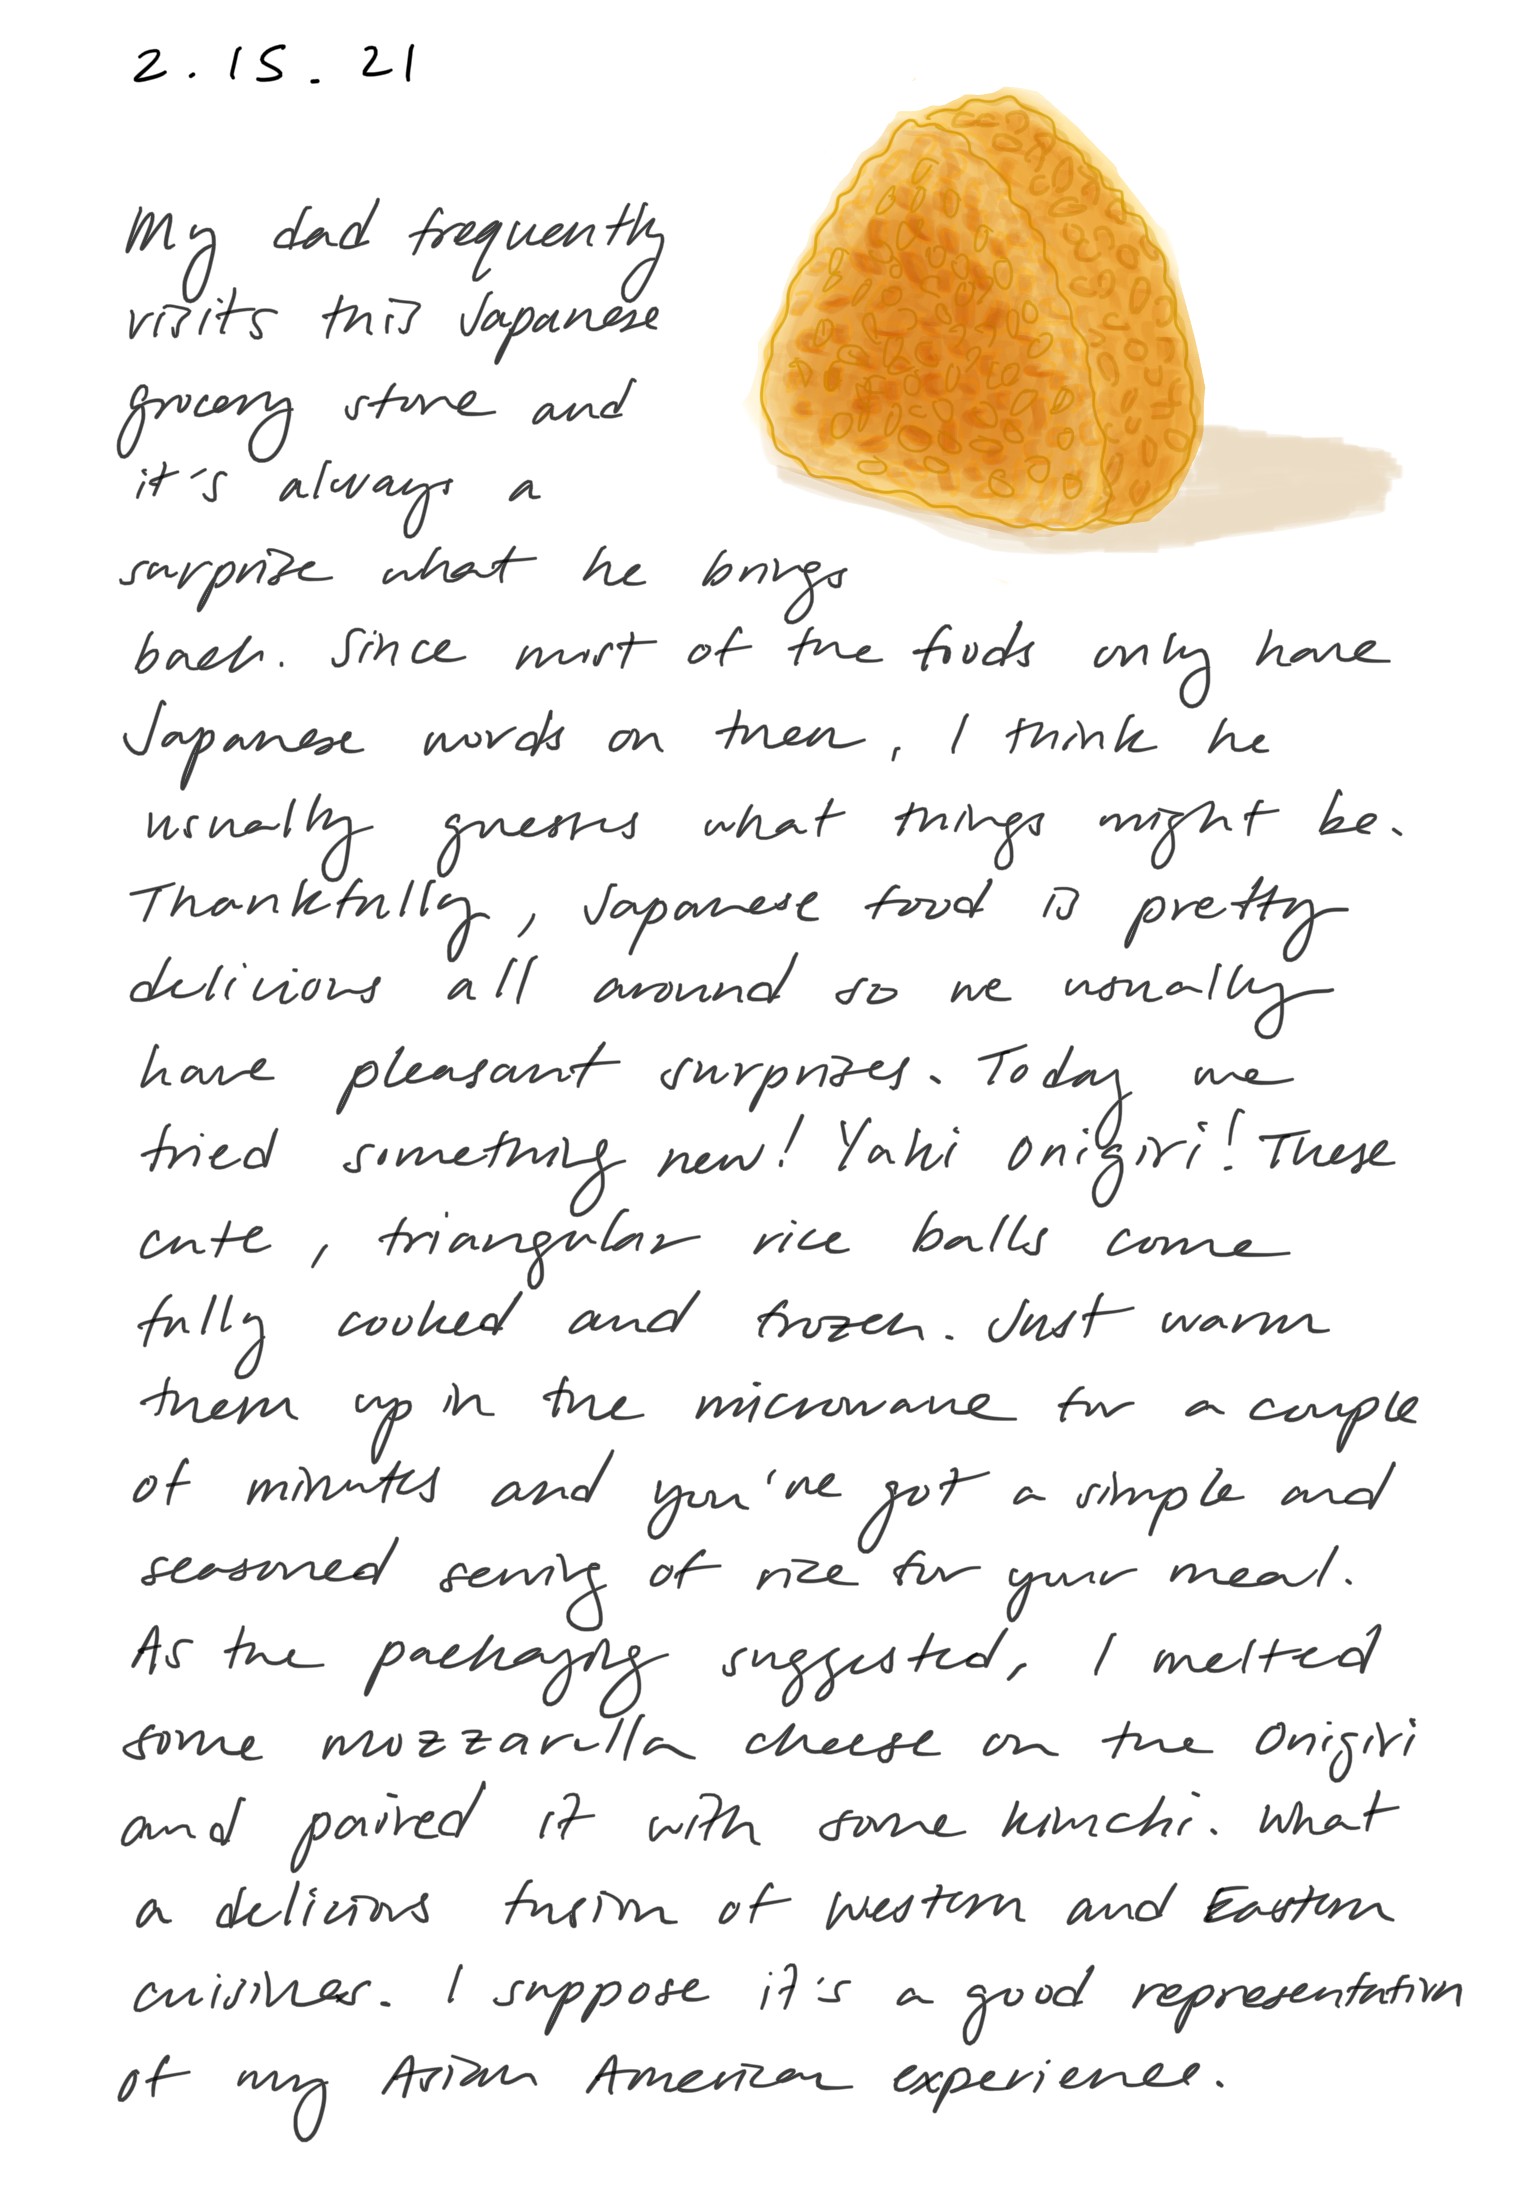 2.15.21
My dad frequently
visits this Japanese
grocery store and
it's always a
surprise what he brings
back. Since most of the foods only have
Japanese words on them, I think he
usually guesses what things might be.
Thankfully, Japanese food is pretty
delicious all around so we usually
have pleasant surprises. Today we
tried something new! Yaki Onigiri! These
cute, triangular rice balls come
fully cooked and frozen. Just warm
them up in the microwave for a couple
of minutes and you've got a simple and
seasoned serving of rice for your meal.
As the packaging suggested, I melted
some mozzarella cheese on the Onigiri
and paired it with some kimchi. What
a delicious fusion of Western and Eastern
cuisines. I suppose it's a good representation
of my Asian American experience.